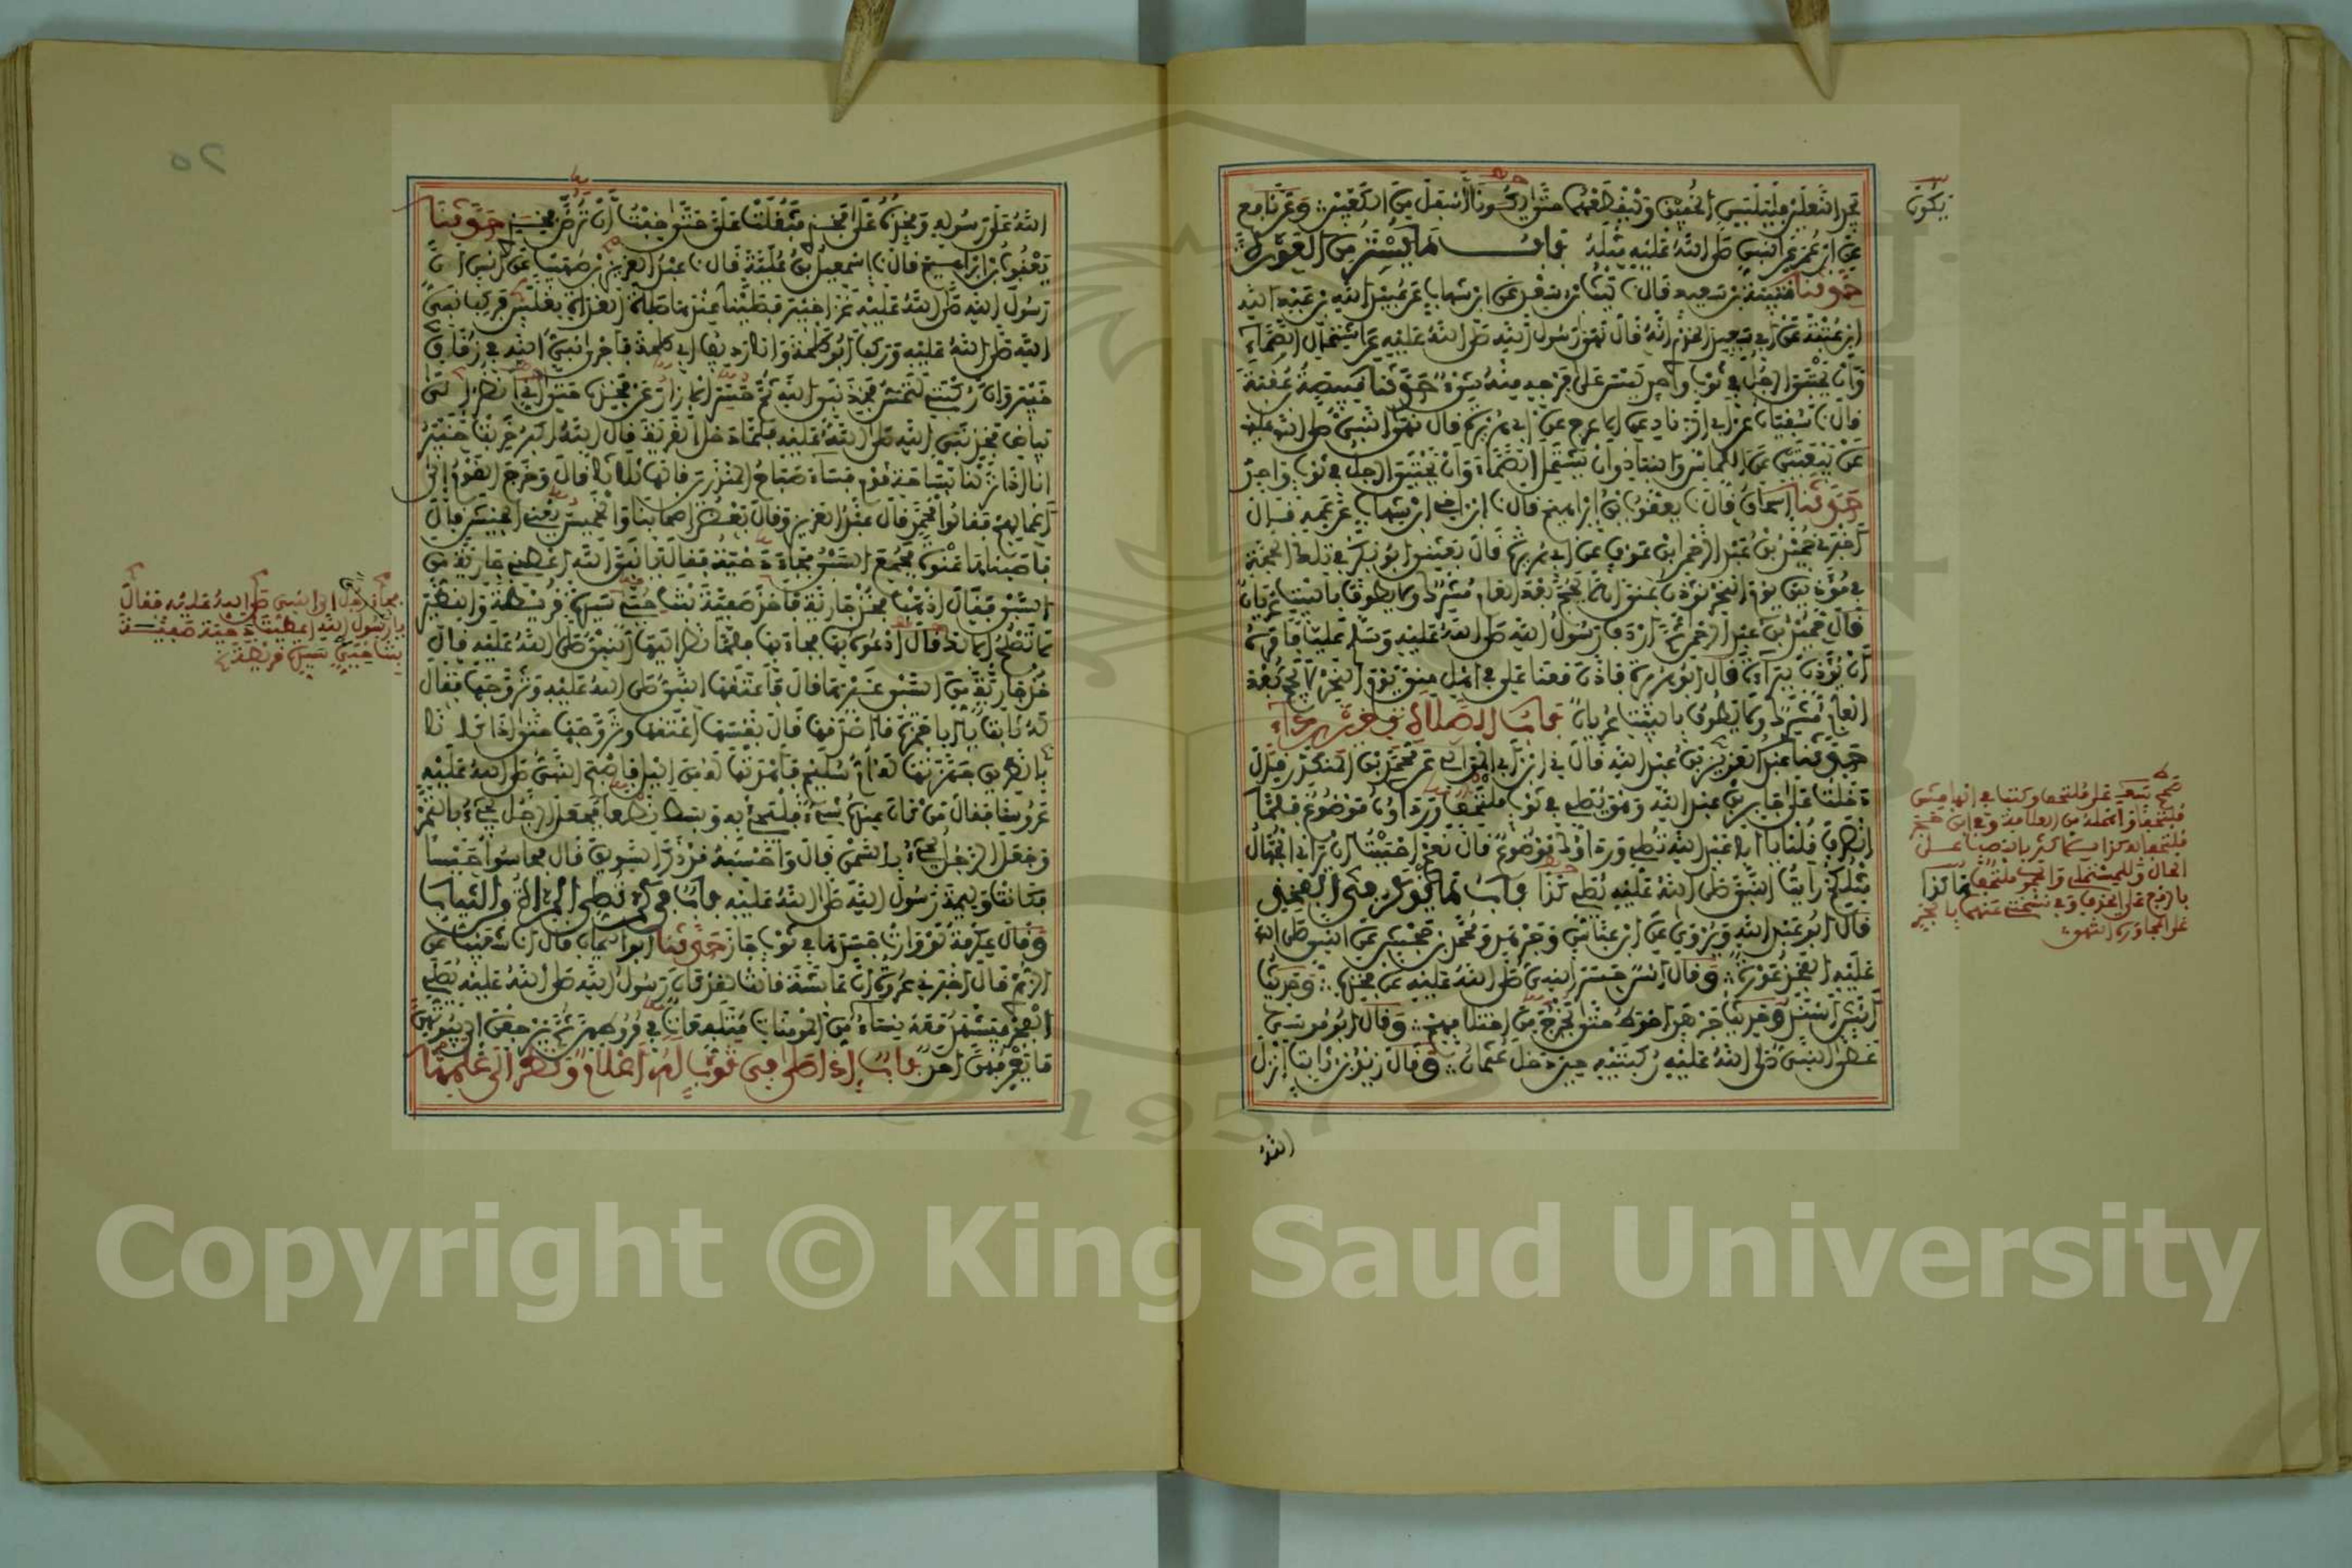 يجد النعلين فليلبس الخفين وليقطعهما حتى يكونا أسفل من الكعبين وعن نافع
عن ابن عمر عن النبي صلى الله عليه مثله باب ما يستر من العورة
حدثنا قتيبة بن سعيد قال نا ليث بن سعد عن ابن شهاب عن عبيد الله بن عبد الله
ابن عتبة عن أبي سعيد الخدري أنه قال نهى رسول الله صلى الله عليه عن اشتمال الصماء
وأن يحتبي الرجل في ثوب واحد ليس على فرجه منه شيء حدثنا قبيصة بن عقبة
قال نا سفيان عن أبي الزناد عن الأعرج عن أبي هريرة قال نهى النبي صلى الله عليه
عن بيعتين عن اللماس والنباذ وأن يشتمل الصماء وأن يحتبي الرجل في ثوب واحد
حدثنا إسحاق قال نا يعقوب بن إبراهيم قال نا ابن أخي ابن شهاب عن عمه قال
أخبرني حميد بن عبد الرحمن بن عوف عن أبي هريرة قال بعثني أبو بكر في تلك الحجة
في مؤذنين يوم النحر نؤذن بمنى ألا لا يحج بعد العام مشرك ولا يطوف بالبيت عريان
قال حميد بن عبد الرحمن ثم أردف رسول الله صلى الله عليه وسلم عليا فأمره
أن يؤذن ببراءة قال أبو هريرة فأذن معنا علي في أهل منى يوم النحر لا يحج بعد
العام مشرك ولا يطوف بالبيت عريان باب الصلاة بغير رداء
حدثنا عبد العزيز بن عبد الله قال ني ابن أبي الموالي عن محمد بن المنكدر قال
دخلت على جابر بن عبد الله وهو يصلي في ثوب ملتحفا به ورداؤه موضوع فلما
انصرف قلنا يا أبا عبد الله تصلي ورداؤك موضوع قال نعم أحببت أن يراني الجهال
مثلكم رأيت النبي صلى الله عليه يصلي كذا باب ما يذكر في الفخذ
قال أبو عبد الله ويروى عن ابن عباس وجرهد ومحمد بن جحش عن النبي صلى الله
عليه الفخذ عورة وقال أنس حسر النبي صلى الله عليه عن فخذه وحديث
أنس أسند وحديث جرهد أحوط حتى نخرج من اختلافهم وقال أبو موسى
غطى النبي صلى الله عليه ركبتيه حين دخل عثمان وقال زيد بن ثابت أنزل
الله
يكون
الله على رسوله وفخذه على فخذي فثقلت علي حتى خفت أن ترض فخذي حدثنا
يعقوب بن إبراهيم قال نا إسمعيل بن علية قال نا عبد العزيز بن صهيب عن أنس أن
رسول الله صلى الله عليه غزا خيبر فصلينا عندها صلاة الغداة بغلس فركب نبي
الله صلى الله عليه وركب أبو طلحة وأنا رديف أبي طلحة فأجرى نبي الله في زقاق
خيبر وإن ركبتي لتمس فخذ نبي الله ثم حسر الإزار عن فخذه حتى إني أنظر إلى
بياض فخذ نبي الله صلى الله عليه فلما دخل القرية قال الله أكبر خربت خيبر
إنا إذا نزلنا بساحة قوم فساء صباح المنذرين قالها ثلاثا قال وخرج القوم إلى
أعمالهم فقالوا محمد قال عبد العزيز وقال بعض أصحابنا والخميس يعني الجيش قال
فأصبناها عنوة فجمع السبي فجاء دحية فقال يا نبي الله أعطني جارية من
السبي فقال اذهب فخذ جارية فأخذ صفية بنت حيي سيدة قريظة والنضير
لا تصلح إلا لك قال ادعوه بها فجاء بها فلما نظر إليها النبي صلى الله عليه قال
خذ جارية من السبي غيرها قال فأعتقها النبي صلى الله عليه وتزوجها فقال
له ثابت يا أبا حمزة ما أصدقها قال نفسها أعتقها وتزوجها حتى إذا كان
بالطريق جهزتها له أم سليم فأهدتها له من الليل فأصبح النبي صلى الله عليه
عروسا فقال من كان عنده شيء فليجئ به وبسط نطعا فجعل الرجل يجيء بالتمر
وجعل الرجل يجيء بالسمن قال وأحسبه قد ذكر السويق قال فحاسوا حيسا
فكانت وليمة رسول الله صلى الله عليه باب في كم تصلي المرأة في الثياب
وقال عكرمة لو وارت جسدها في ثوب جاز حدثنا أبو اليمان قال أنا شعيب عن
الزهري قال أخبرني عروة أن عائشة قالت لقد كان رسول الله صلى الله عليه يصلي
الفجر فيشهد معه نساء من المؤمنات متلفعات في مروطهن ثم يرجعن إلى بيوتهن
ما يعرفهن أحد باب إذا صلى في ثوب له أعلام ونظر إلى علمها
فجاء رجل إلى النبي صلى الله عليه فقال
يا رسول الله أعطيت دحية صفية
بنت حيي سيدة قريظة
Copyright © King Saud University
1957